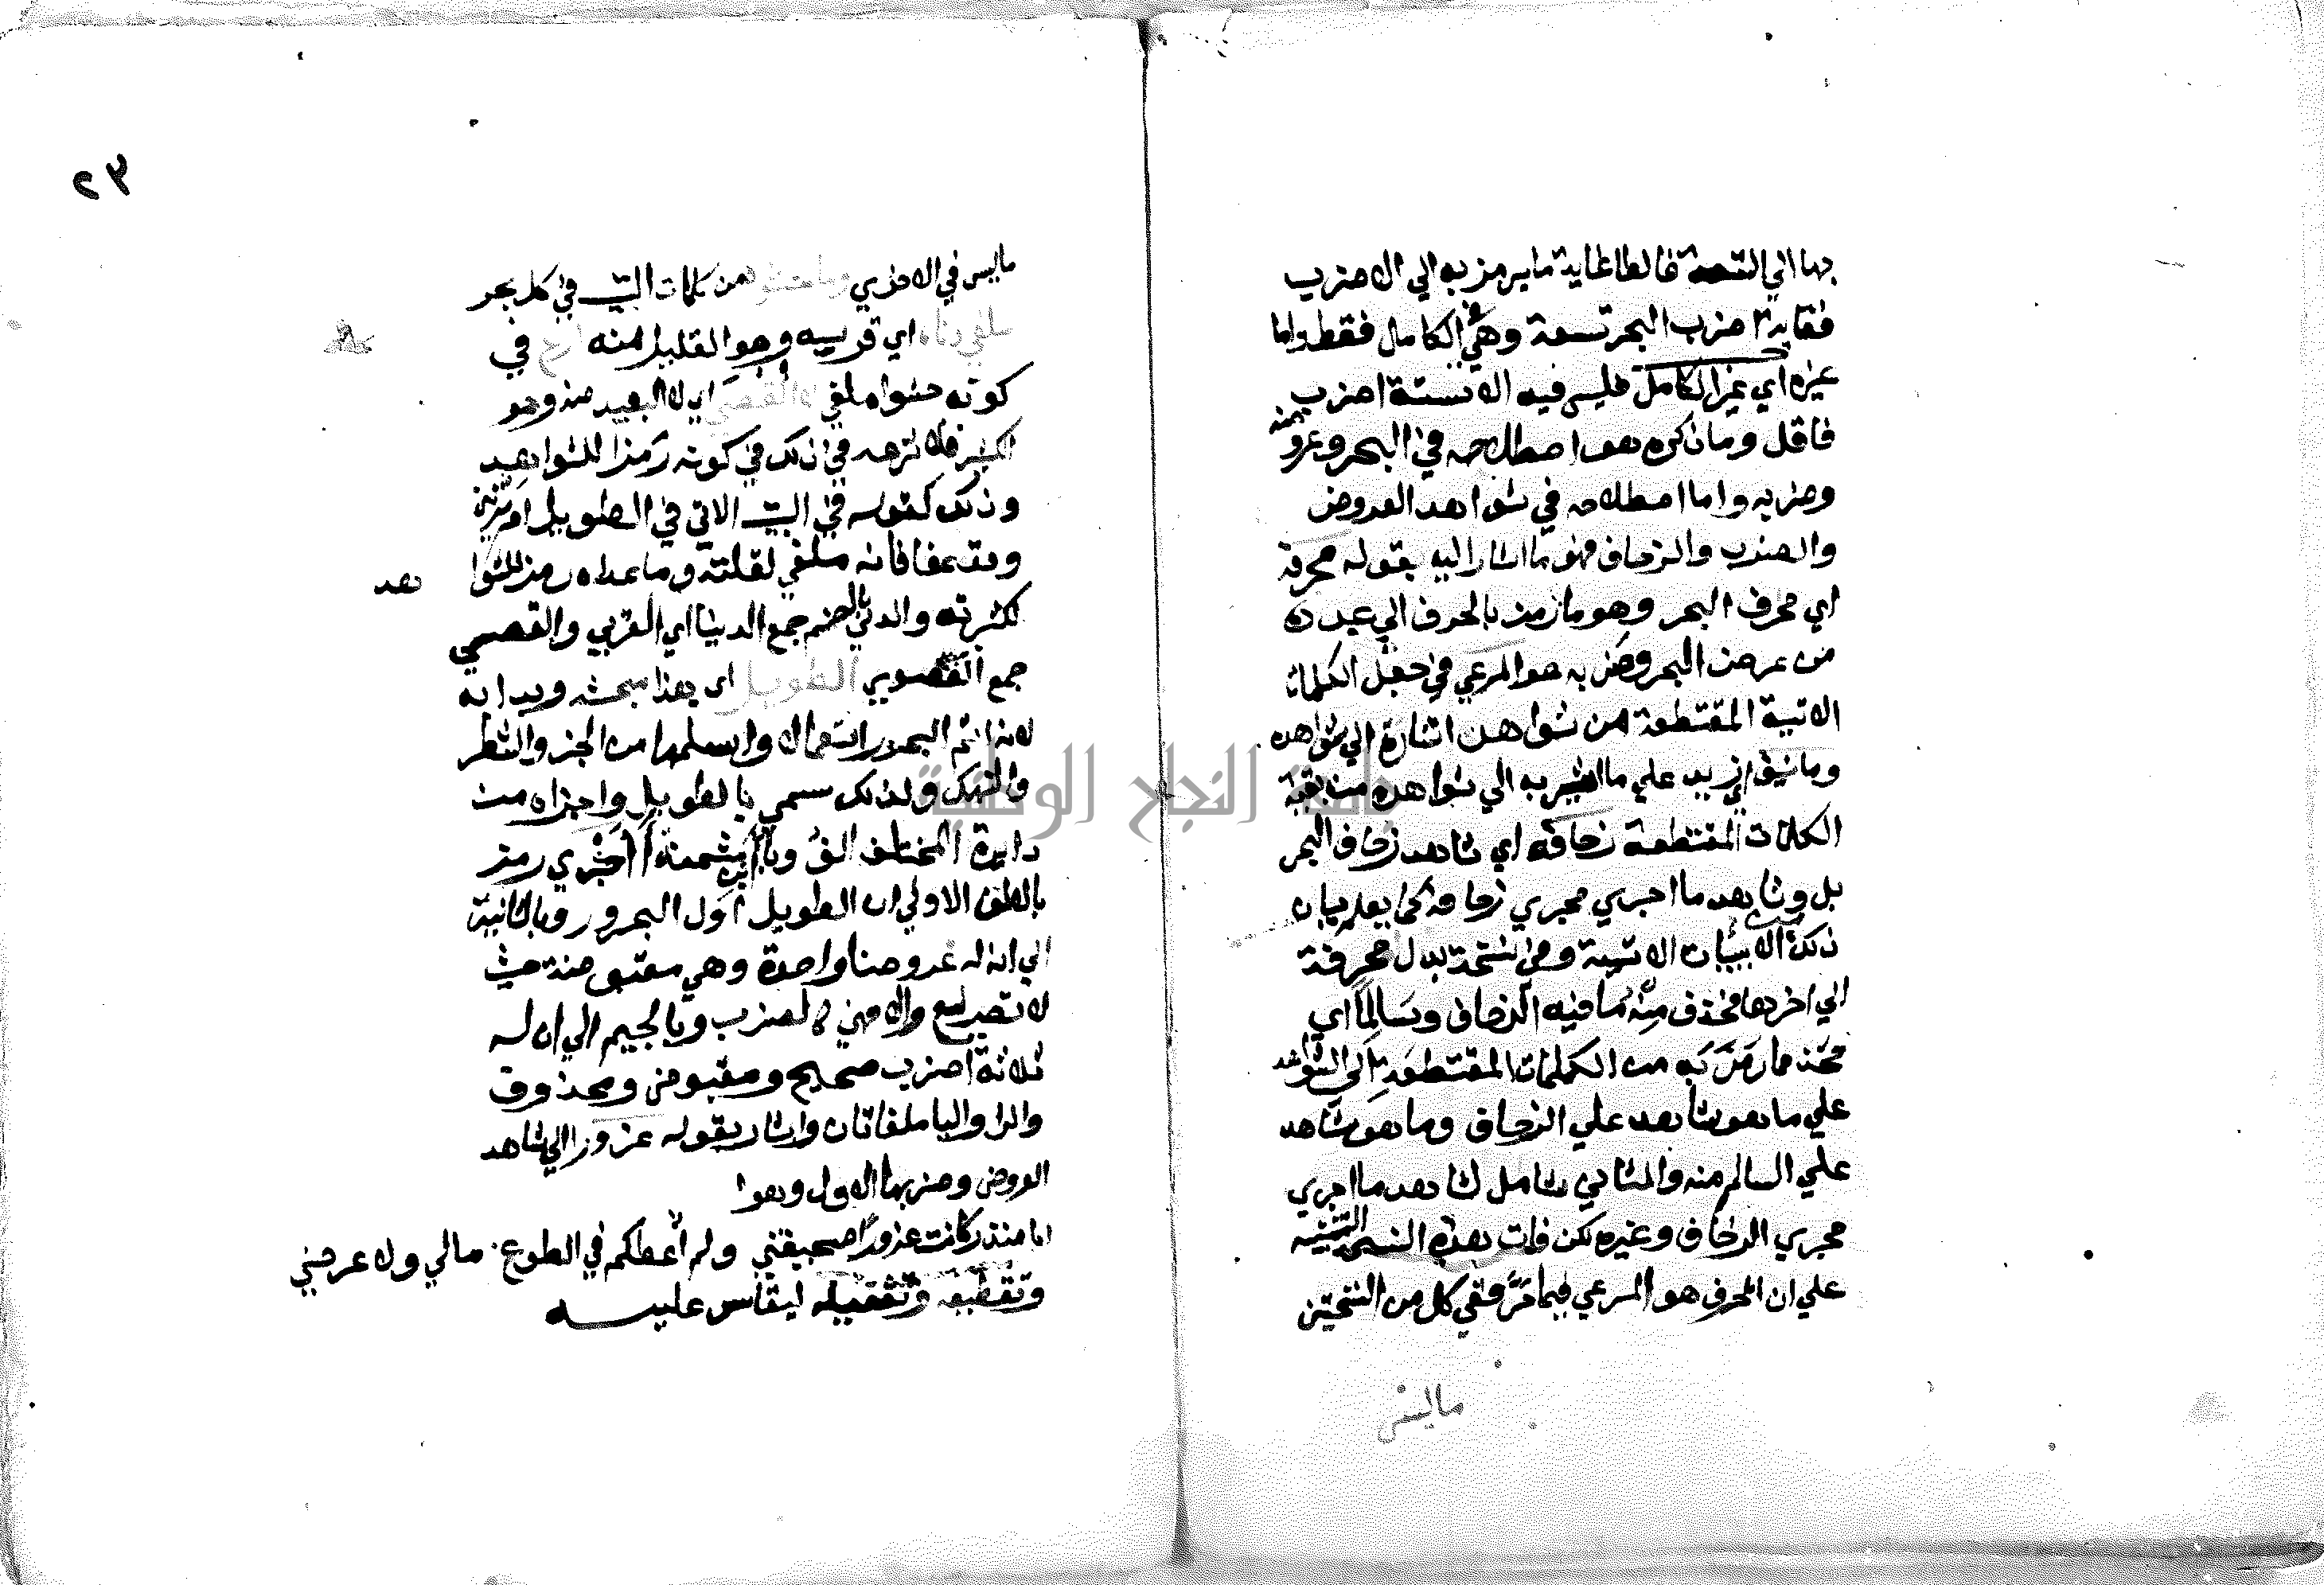 بها الي التسعة فالطا غاية ما يرمز به الي الاضرب
فغاية اضرب البحر تسعة وهي في الكامل فقط واما
غيره اي غير الكامل فليس فيه الا ستة اضرب
فاقل وما ذكره هو اصطلاحه في البحر وعروضه
وضربه واما اصطلاحه في شواهد العروض
والضرب والزحاف فهو ما اشار اليه بقوله محرفة
اي محرف البحر وهو ما رمز بالحرف الي عدده
من عرض البحر وضربه هو المرعي في جعل الكلمات
الاتية المقتطعة من شواهد اشارة الي شواهده
وما نيف اي زيد علي ما اشير به الي شواهده من بقية
الكلمات المقتطعة زحافه اي شاهد زحاف البحر
بل وشاهد ما اجري مجري زحافه كما يعلم ببيان
ذلك الابيات الاتية وفي نسخة بدل محرفة
الي اخرها فخذ منه ما فيه الزحاف وسالما اي
فخذ مما رمز به من الكلمات المقتطعة الي الشواهد
علي ما هو شاهد علي الزحاف وما هو شاهد
علي السالم منه والثاني شامل لشاهد ما اجري
مجري الزحاف وغيره لكن فات هذه النسخة التنبيه
علي ان المحرف هو المرعي فيما مر ففي كل من النسختين
ماليس
٢٣
ماليس في الاخري وما حشوا من كلمات البيت في كل بحر
ملغي دناه اي قريبه وهو القليل منه في
كونه حشوا ملغي لا القصي اي لا البعيد منه وهو
الكثير فلا تزهه في ذلك في كونه رمزا للشواهد
وذلك كقوله في البيت الاتي في الطويل
وقد عفا فانه ملغي لقلته وما عداه رمز للشوا هد
لكثرته والدني بالضم جمع الدنيا اي القربي والقصي
جمع القصوي الطويل اي هذا مبحثه وبدا به
لانه اتم البحور استعمالا واسلمها من الجزء والشطر
والنهك ولذلك سمي بالطويل واجزاه من
دايرة المختلف الف وبا مثمنة أاجري رمز
بالالف الاولي ان الطويل اول البحور وبالثانية
الي ان له عروضا واحدة وهي مقبوضة حيث
لا تصريع والا فهي كالضرب وبالجيم الي ان له
ثلاثة اضرب صحيح ومقبوض ومحذوف
والرا واليا ملغاتان واشار بقوله غرورا الي شاهد
العروض وضربها الاول وهو
ابا منذر كانت غرورا صحيفتي ولم اعطكم في الطوع مالي ولا عرضي
وتقطيعه وتفعيله ليقاس عليه